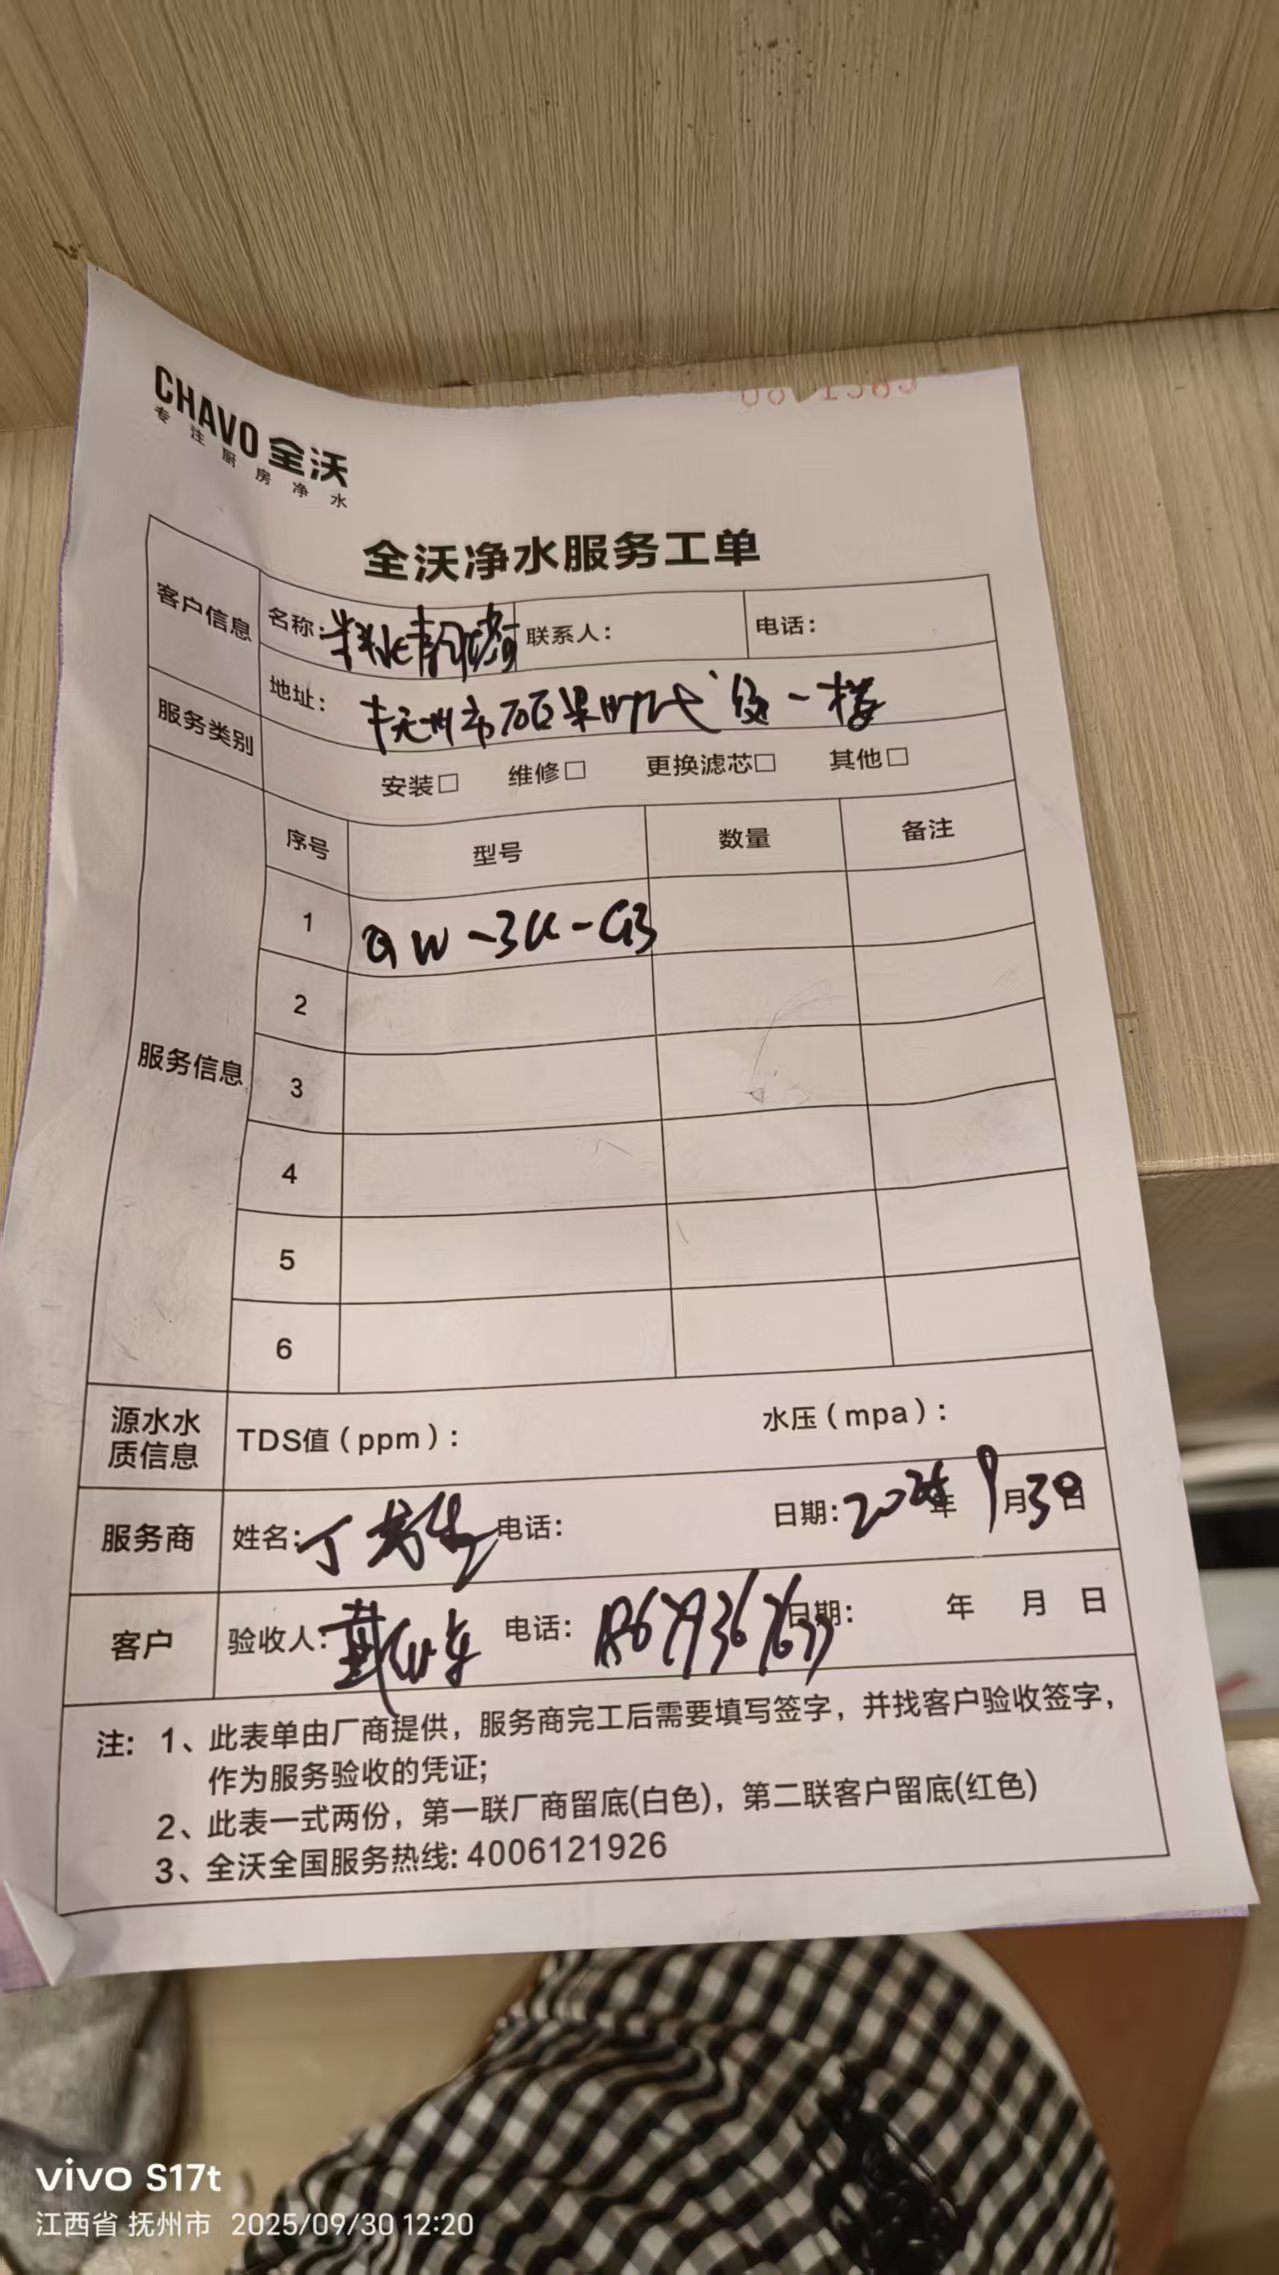 CHAVO 全沃
专注厨房净水
全沃净水服务工单
客户信息 名称: 联系人: 电话:
地址: 抚州市硕果时代 负一楼
服务类别 安装□ 维修□ 更换滤芯□ 其他□
服务信息 序号 型号 数量 备注
1 QW-3U-G3
2
3
4
5
6
源水水质信息 TDS值（ppm）: 水压（mpa）:
服务商 姓名: 丁 电话: 日期: 2025年9月30日
客户 验收人: 戴 电话: 日期: 年 月 日
注: 1、此表单由厂商提供，服务商完工后需要填写签字，并找客户验收签字，
作为服务验收的凭证;
2、此表一式两份，第一联厂商留底(白色)，第二联客户留底(红色)
3、全沃全国服务热线: 4006121926
vivo S17t
江西省 抚州市 2025/09/30 12:20